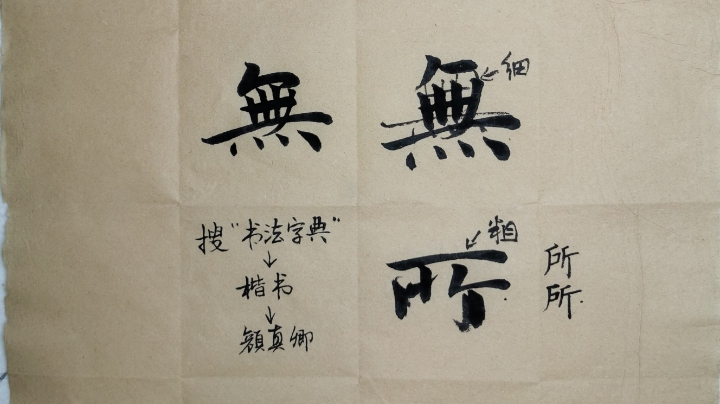 無 無 ←细
搜"书法字典"
↓
楷书
↓
颜真卿
↙粗
所
所
所